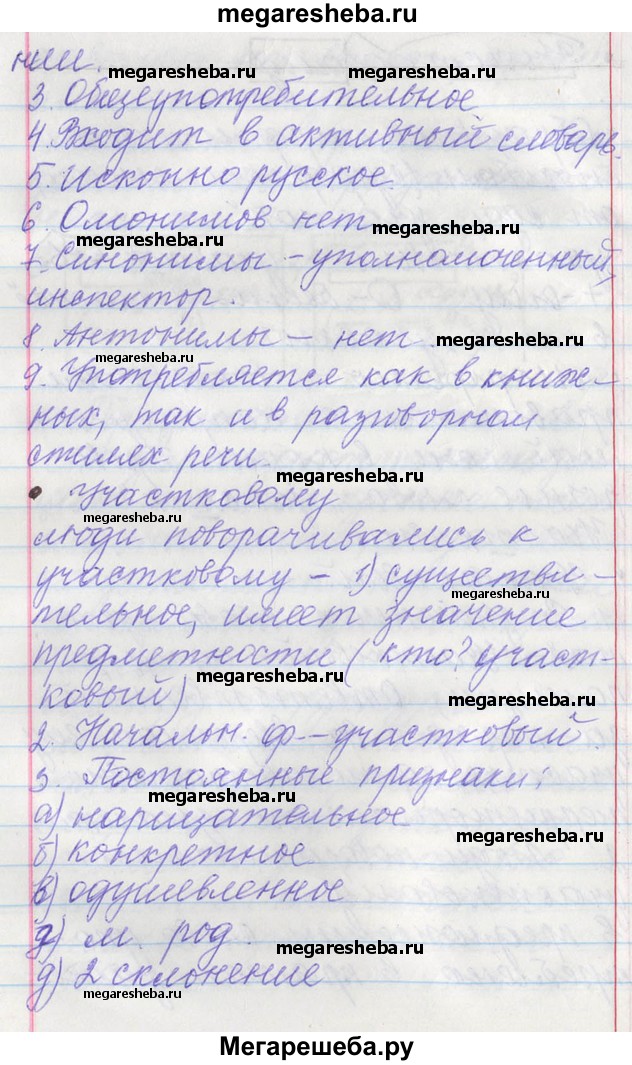 megaresheba.ru
нии.
megaresheba.ru megaresheba.ru
3. Общеупотребительное
4. Входит в активный словарь.
5. Исконно русское.
6. Омонимов нет
megaresheba.ru
megaresheba.ru
7. Синонимы - уполномоченный,
инспектор.
8. Антонимы - нет
megaresheba.ru
megaresheba.ru
9. Употребляется как в книж-
ных, так и в разговорном
стилях речи.
megaresheba.ru
Участковому
megaresheba.ru
люди поворачивались к
участковому - 1) существи-
megaresheba.ru
тельное, имеет значение
предметности (кто? участ-
megaresheba.ru
ковый)
megaresheba.ru
2. Начальн. ф - участковый.
3. Постоянные признаки:
megaresheba.ru
а) нарицательное
megaresheba.ru
б) конкретное
в) одушевленное
г) м. род.
megaresheba.ru
д) 2 склонение
megaresheba.ru
Мегарешеба.ру